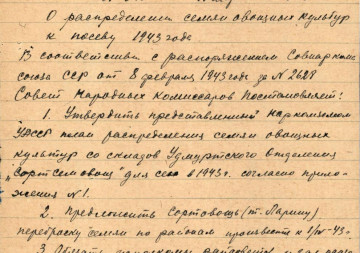 О распределении семян овощных культур
к посеву 1943 года
В соответствии с распоряжением Совнаркома
союза ССР от 8 февраля 1943 года за № 2628
Совет Народных Комиссаров Постановляет:
1. Утвердить представленный наркомземом
УАССР план распределения семян овощных
культур со складов Удмуртского отделения
„Сортсемовощ" для сева в 1943 г. согласно прило-
жения № 1.
2. Предложить Сортовощь (т. Ларину)
переброску семян по районам произвести к 1/IV-43 г.
3. Обязать